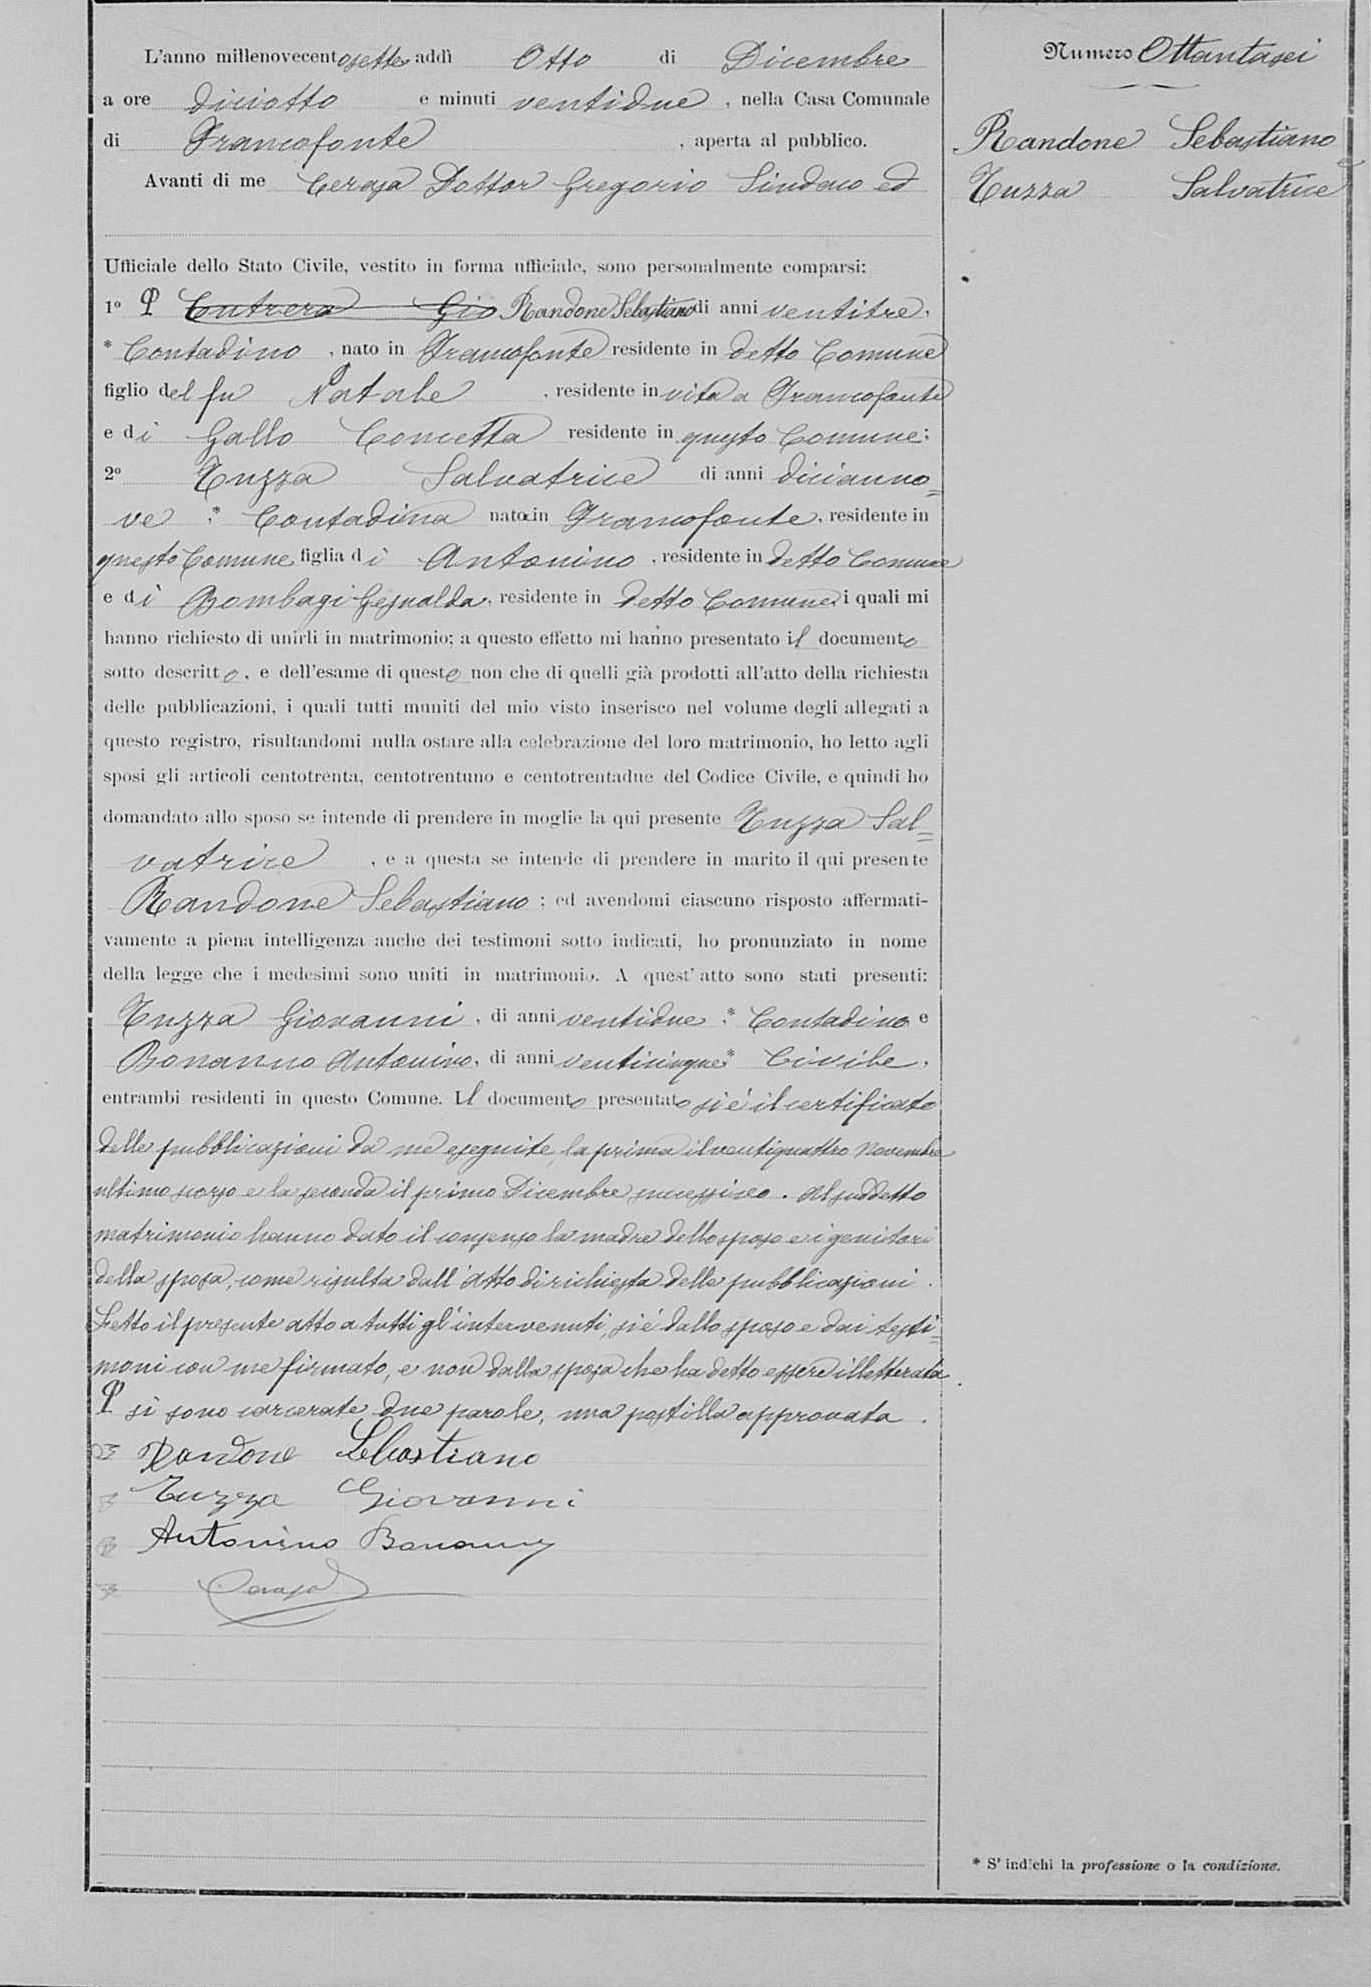 L'anno millenovecentosette addì Otto di Dicembre
a ore diciotto e minuti ventidue, nella Casa Comunale
di Francofonte, aperta al pubblico.
Avanti di me Cerasa Dottor Gregorio Sindaco ed
Ufficiale dello Stato Civile, vestito in forma ufficiale, sono personalmente comparsi:
1º Contrera Gio Randone Sebastiano di anni ventitre,
* Contadino, nato in Francofonte residente in detto Comune
figlio del fu Natale, residente in vita a Francofonte
e di Gallo Concetta residente in questo Comune;
2º Tuzza Salvatrice di anni dicianno=
ve, * Contadina nata in Francofonte, residente in
questo Comune figlia di Antonino, residente in detto Comune
e di Bombagi Gesualda, residente in detto Comune, i quali mi
hanno richiesto di unirli in matrimonio; a questo effetto mi hanno presentato il documento
sotto descritto, e dell'esame di questo non che di quelli già prodotti all'atto della richiesta
delle pubblicazioni, i quali tutti muniti del mio visto inserisco nel volume degli allegati a
questo registro, risultandomi nulla ostare alla celebrazione del loro matrimonio, ho letto agli
sposi gli articoli centotrenta, centotrentuno e centotrentadue del Codice Civile, e quindi ho
domandato allo sposo se intende di prendere in moglie la qui presente Tuzza Sal=
vatrice, e a questa se intende di prendere in marito il qui presente
Randone Sebastiano; ed avendomi ciascuno risposto affermati-
vamente a piena intelligenza anche dei testimoni sotto indicati, ho pronunziato in nome
della legge che i medesimi sono uniti in matrimonio. A quest'atto sono stati presenti:
Tuzza Giovanni, di anni ventidue, * Contadino e
Bonanno Antonino, di anni venticinque * Civile,
entrambi residenti in questo Comune. Il documento presentato si è il certificato
delle pubblicazioni da me eseguite, la prima il ventiquattro Novembre
ultimo scorso e la seconda il primo Dicembre successivo. Al suddetto
matrimonio hanno dato il consenso la madre dello sposo e i genitori
della sposa, come risulta dall'atto di richiesta delle pubblicazioni.
Letto il presente atto a tutti gl'intervenuti, si è dallo sposo e dai testi=
moni con me firmato, e non dalla sposa che ha detto essere illetterata.
si sono carcerate due parole, una postilla approvata.
Randone Sebastiano
Tuzza Giovanni
Antonino Bonanno
Cerasa
Numero Ottantasei
Randone Sebastiano
e
Tuzza Salvatrice
* S'indichi la professione o la condizione.